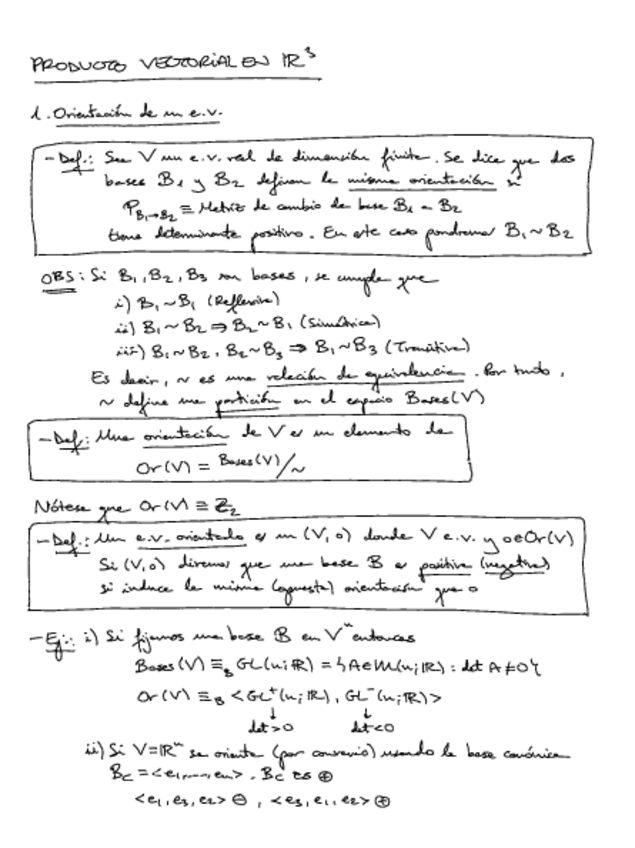 PRODUCTO VECTORIAL EN IR³
1. Orientación de un e.v.
- Def.: Sea V un e.v. real de dimensión finita. Se dice que dos
bases B₁ y B₂ definen la misma orientación si
P_{B₁→B₂} ≡ Matriz de cambio de base B₁ a B₂
tiene determinante positivo. En este caso pondremos B₁ ~ B₂
OBS: Si B₁, B₂, B₃ son bases, se cumple que
i) B₁ ~ B₁ (Reflexiva)
ii) B₁ ~ B₂ ⇒ B₂ ~ B₁ (Simétrica)
iii) B₁ ~ B₂, B₂ ~ B₃ ⇒ B₁ ~ B₃ (Transitiva)
Es decir, ~ es una relación de equivalencia. Por tanto,
~ define una partición en el espacio Bases(V)
- Def.: Una orientación de V es un elemento de
Or(V) = Bases(V)/~
Nótese que Or(V) ≡ Z₂
- Def.: Un e.v. orientado es un (V, o) donde V e.v. y o∈Or(V)
Si (V, o) diremos que una base B es positiva (negativa)
si induce la misma (opuesta) orientación que o
- Ej.: i) Si fijamos una base B en Vⁿ entonces
Bases(V) ≡_B GL(n; IR) = {A∈M(n; IR) : det A ≠ 0}
Or(V) ≡_B <GL⁺(n; IR), GL⁻(n; IR)>
↓ ↓
det>0 det<0
ii) Si V=IRⁿ se orienta (por convenio) usando la base canónica
B_C = <e₁, ..., en>. B_C es ⊕
<e₁, e₃, e₂> ⊖, <e₃, e₁, e₂> ⊕